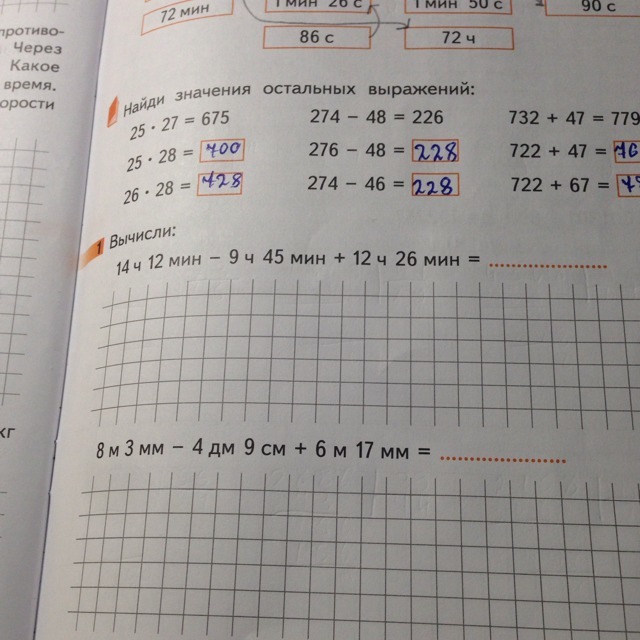 72 мин
1 мин 26 с
1 мин 50 с
90 с
86 с
72 ч
противо-
Через
Какое
время.
орости
кг
Найди значения остальных выражений:
25 · 27 = 675 274 − 48 = 226 732 + 47 = 779
25 · 28 = 700 276 − 48 = 228 722 + 47 = 76
26 · 28 = 728 274 − 46 = 228 722 + 67 = 7
1 Вычисли:
14 ч 12 мин − 9 ч 45 мин + 12 ч 26 мин =
8 м 3 мм − 4 дм 9 см + 6 м 17 мм =